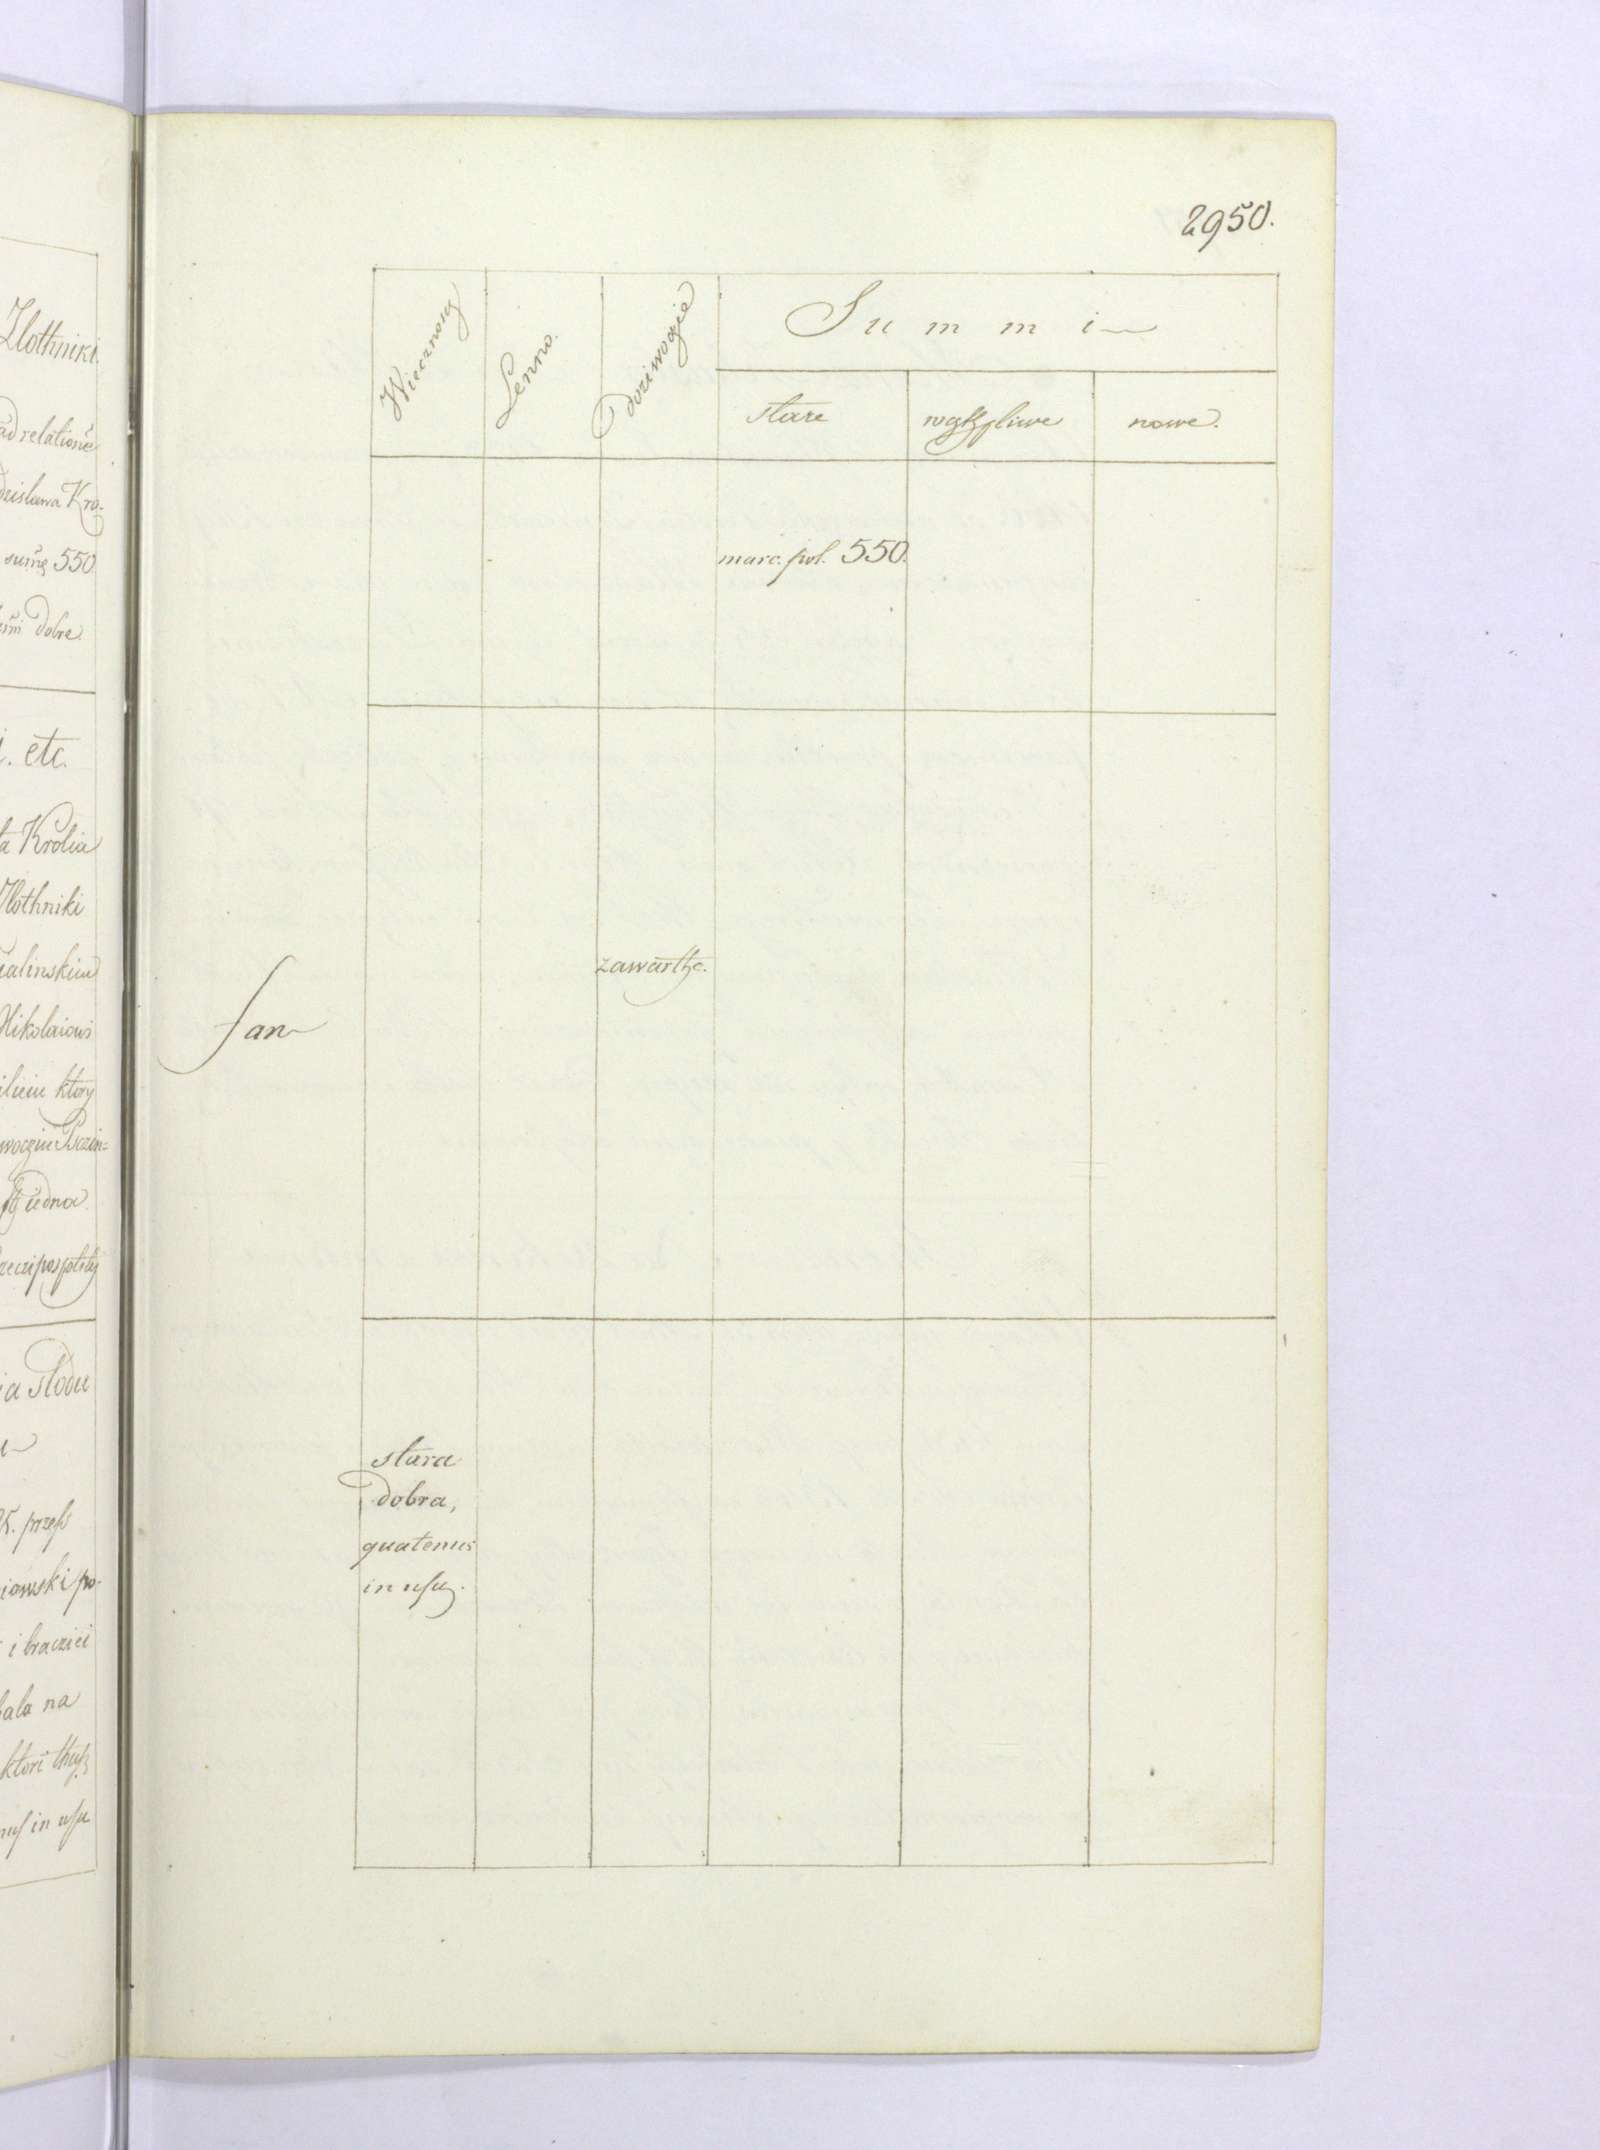 Zlothniki.
ad relationē
dzislawa Kro-
sumę 550
dobre.
etc.
ta Krolia
Zlothniki
alinskim
Mikolaiowi
ktory
iedna
reczipospolitej
ia Slodu
przeſs
iowski po-
i braczici
bala na
ktori thuſz
nuſ in uſu
2950.
Wiecznoscz Lenno. Doziwogie Summi
stare wąthpliwe nowe.
marc. pol. 550.
zawarthe.
ſan
stara
dobra,
quatenus
in uſu.